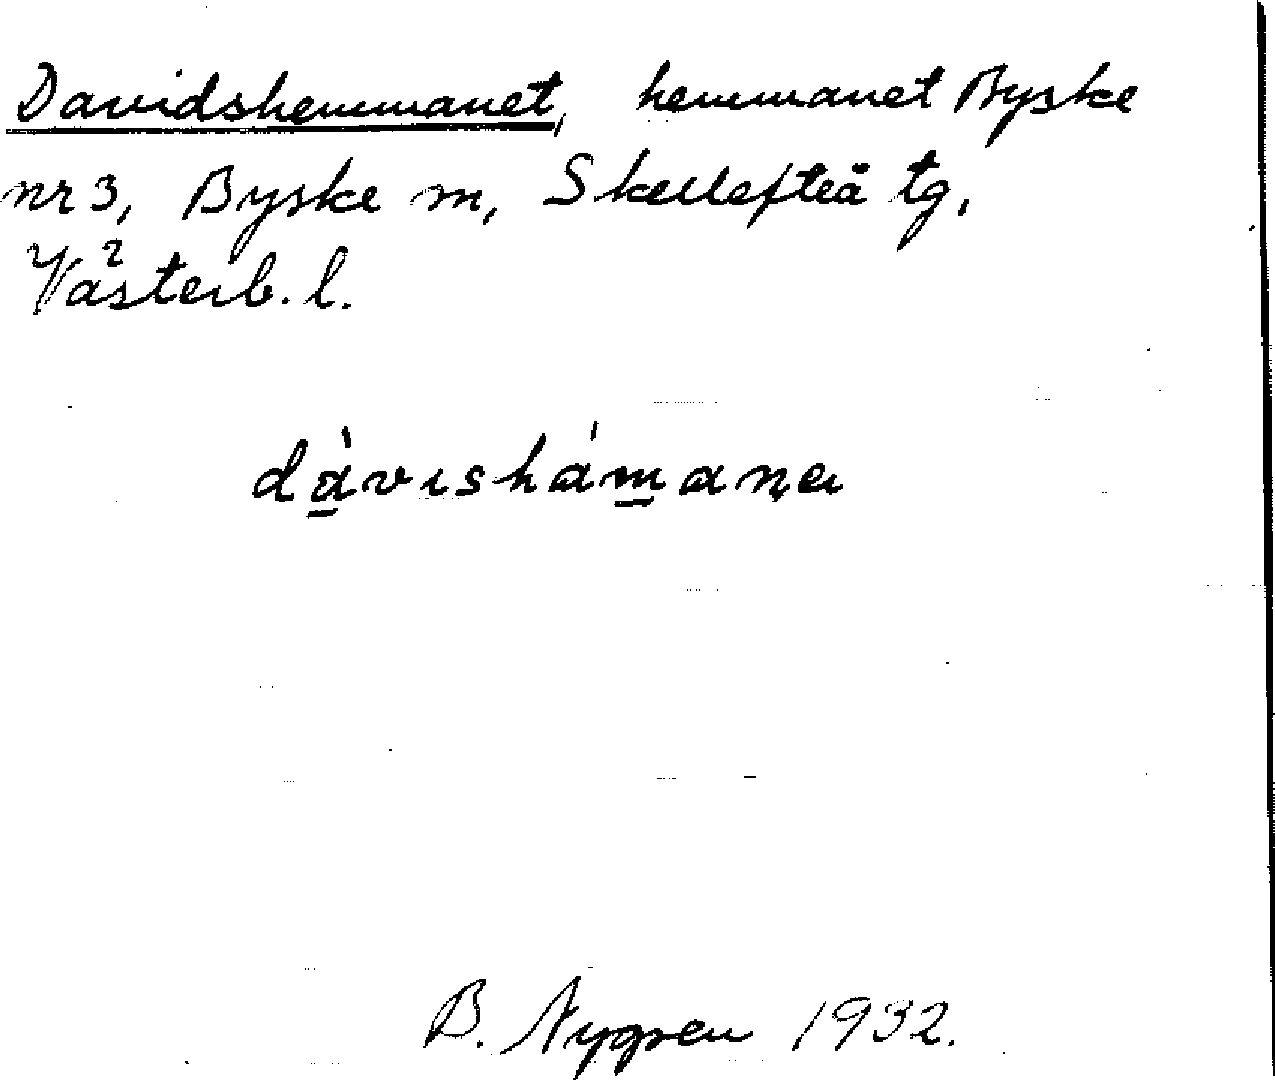 Davidshemmanet, hemmanet Byske
nr 3, Byske sn, Skellefteå tg,
Västerb. l.
B. Nygren 1932.